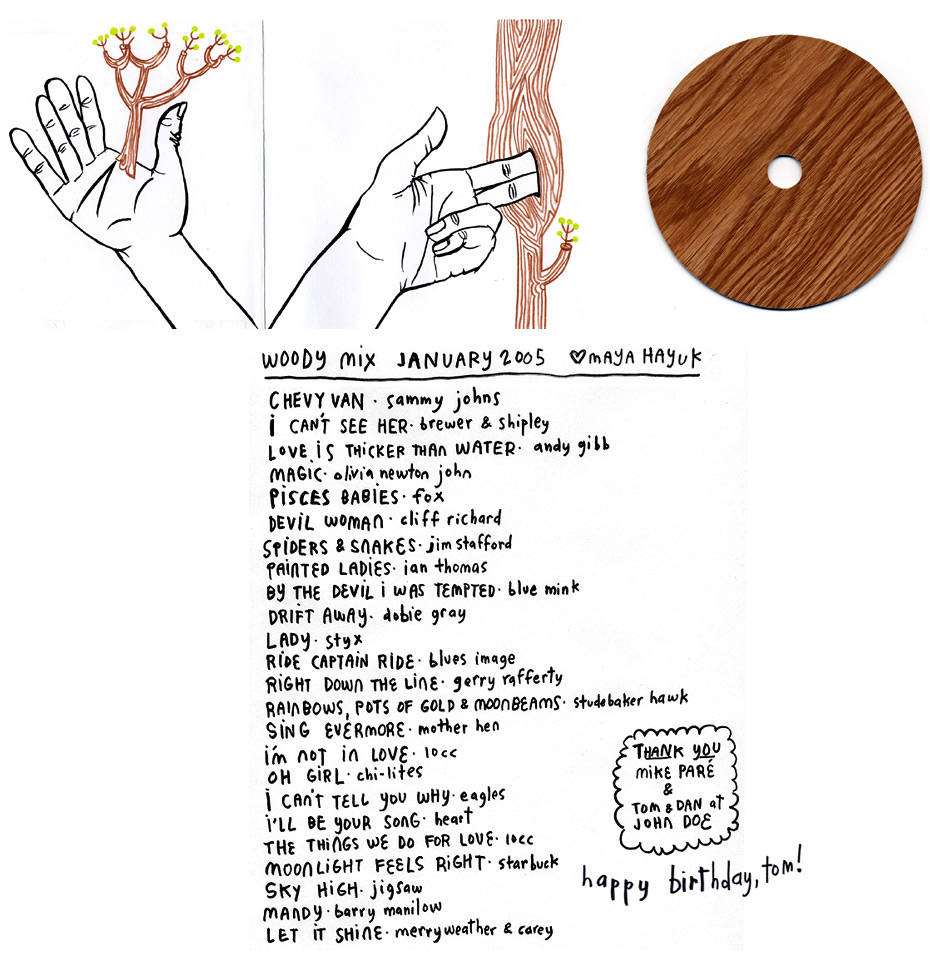 WOODY MIX JANUARY 2005 ♡MAYA HAYUK
CHEVY VAN · sammy johns
I CAN'T SEE HER · brewer & shipley
LOVE IS THICKER THAN WATER · andy gibb
MAGIC · olivia newton john
PISCES BABIES · fox
DEVIL WOMAN · cliff richard
SPIDERS & SNAKES · jim stafford
PAINTED LADIES · ian thomas
BY THE DEVIL I WAS TEMPTED · blue mink
DRIFT AWAY · dobie gray
LADY · styx
RIDE CAPTAIN RIDE · blues image
RIGHT DOWN THE LINE · gerry rafferty
RAINBOWS, POTS OF GOLD & MOONBEAMS · studebaker hawk
SING EVERMORE · mother hen
i'm not in LOVE · 10cc
OH GIRL · chi-lites
I CAN'T TELL YOU WHY · eagles
I'LL BE YOUR SONG · heart
THE THINGS WE DO FOR LOVE · 10cc
MOONLIGHT FEELS RIGHT · starbuck
SKY HIGH · jigsaw
MANDY · barry manilow
LET IT SHINE · merryweather & carey
THANK YOU
MIKE PARÉ
&
TOM & DAN at
JOHN DOE
happy birthday, tom!